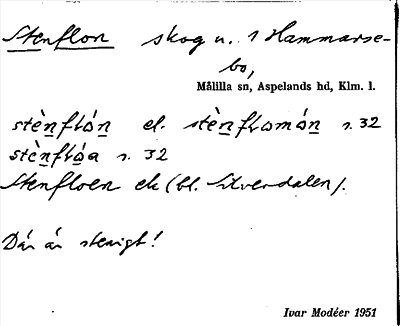 Stenflon skog u. 1 Hammarse-
bo,
Målilla sn, Aspelands hd, Klm. l.
stènflón el. stènflomón s. 32
stènflóa s. 32
Stenfloen ek (bl. Silverdalen).
Där är stenigt!
Ivar Modéer 1951